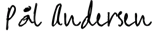 Pål Andersen